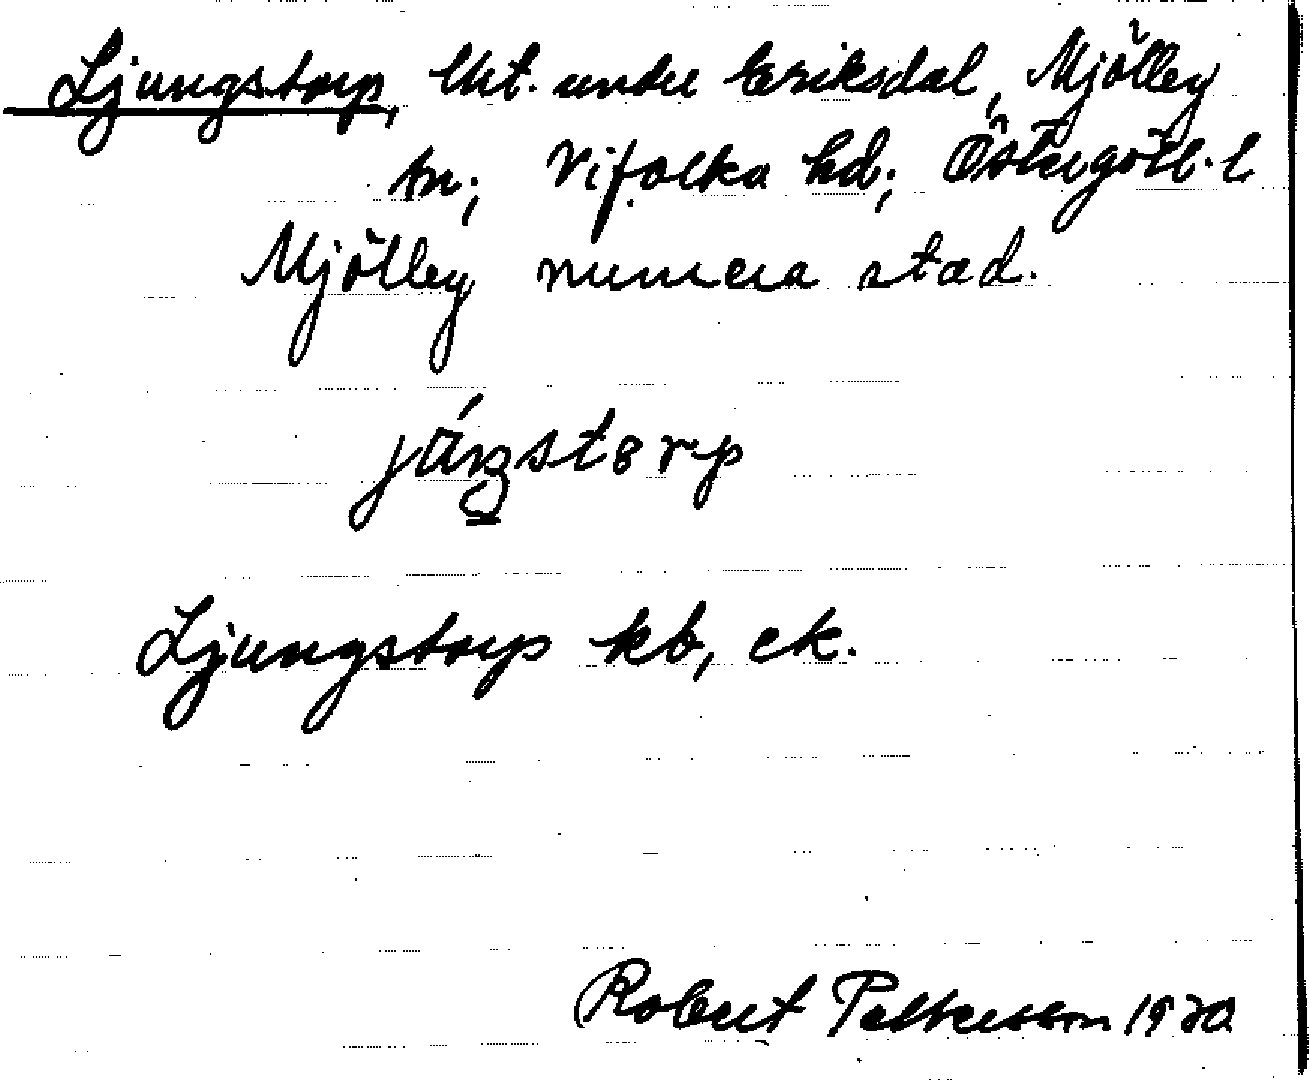 Ljungstorp, lht. under Eriksdal, Mjölby
sn; Vifolka hd; Östergötl. l
Mjölby numera stad.
járgstorp
Ljungstorp kb, ek.
Robert Pettersson 1920